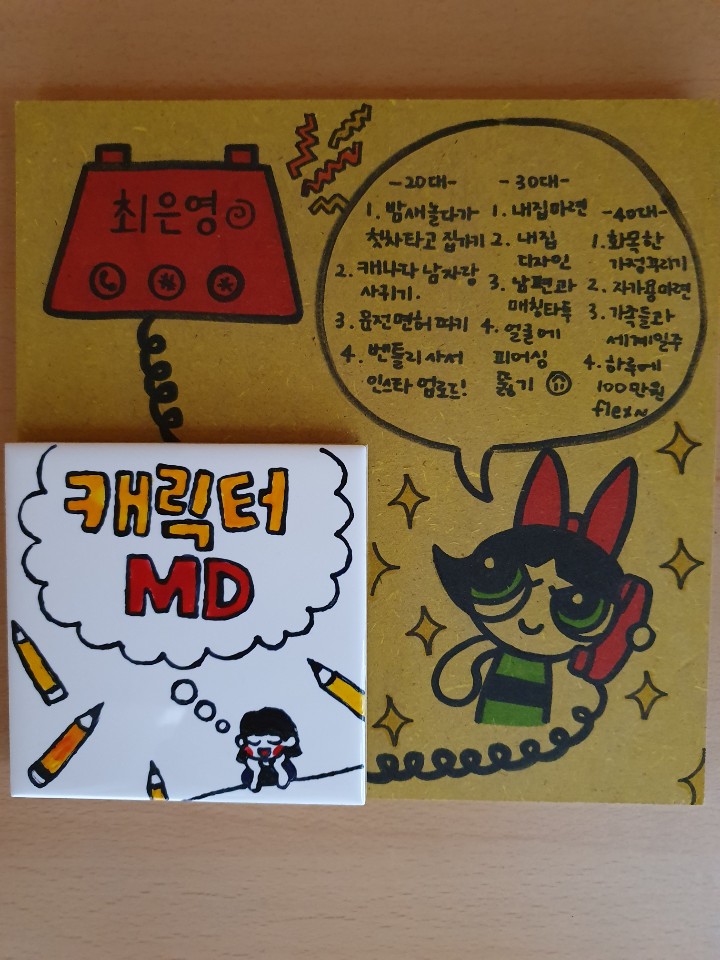 최은영
-20대-
1. 밤새놀다가
첫차타고 집가기
2. 캐나다 남자랑
사귀기.
3. 운전면허 따기
4. 벤틀리 사서
인스타 업로드!
-30대-
1. 내집마련
2. 내집
디자인
3. 남편과
매칭타투
4. 얼굴에
피어싱
뚫기
-40대-
1. 화목한
가정꾸리기
2. 자가용마련
3. 가족들과
세계일주
4. 하루에
100만원
flex~
캐릭터
MD